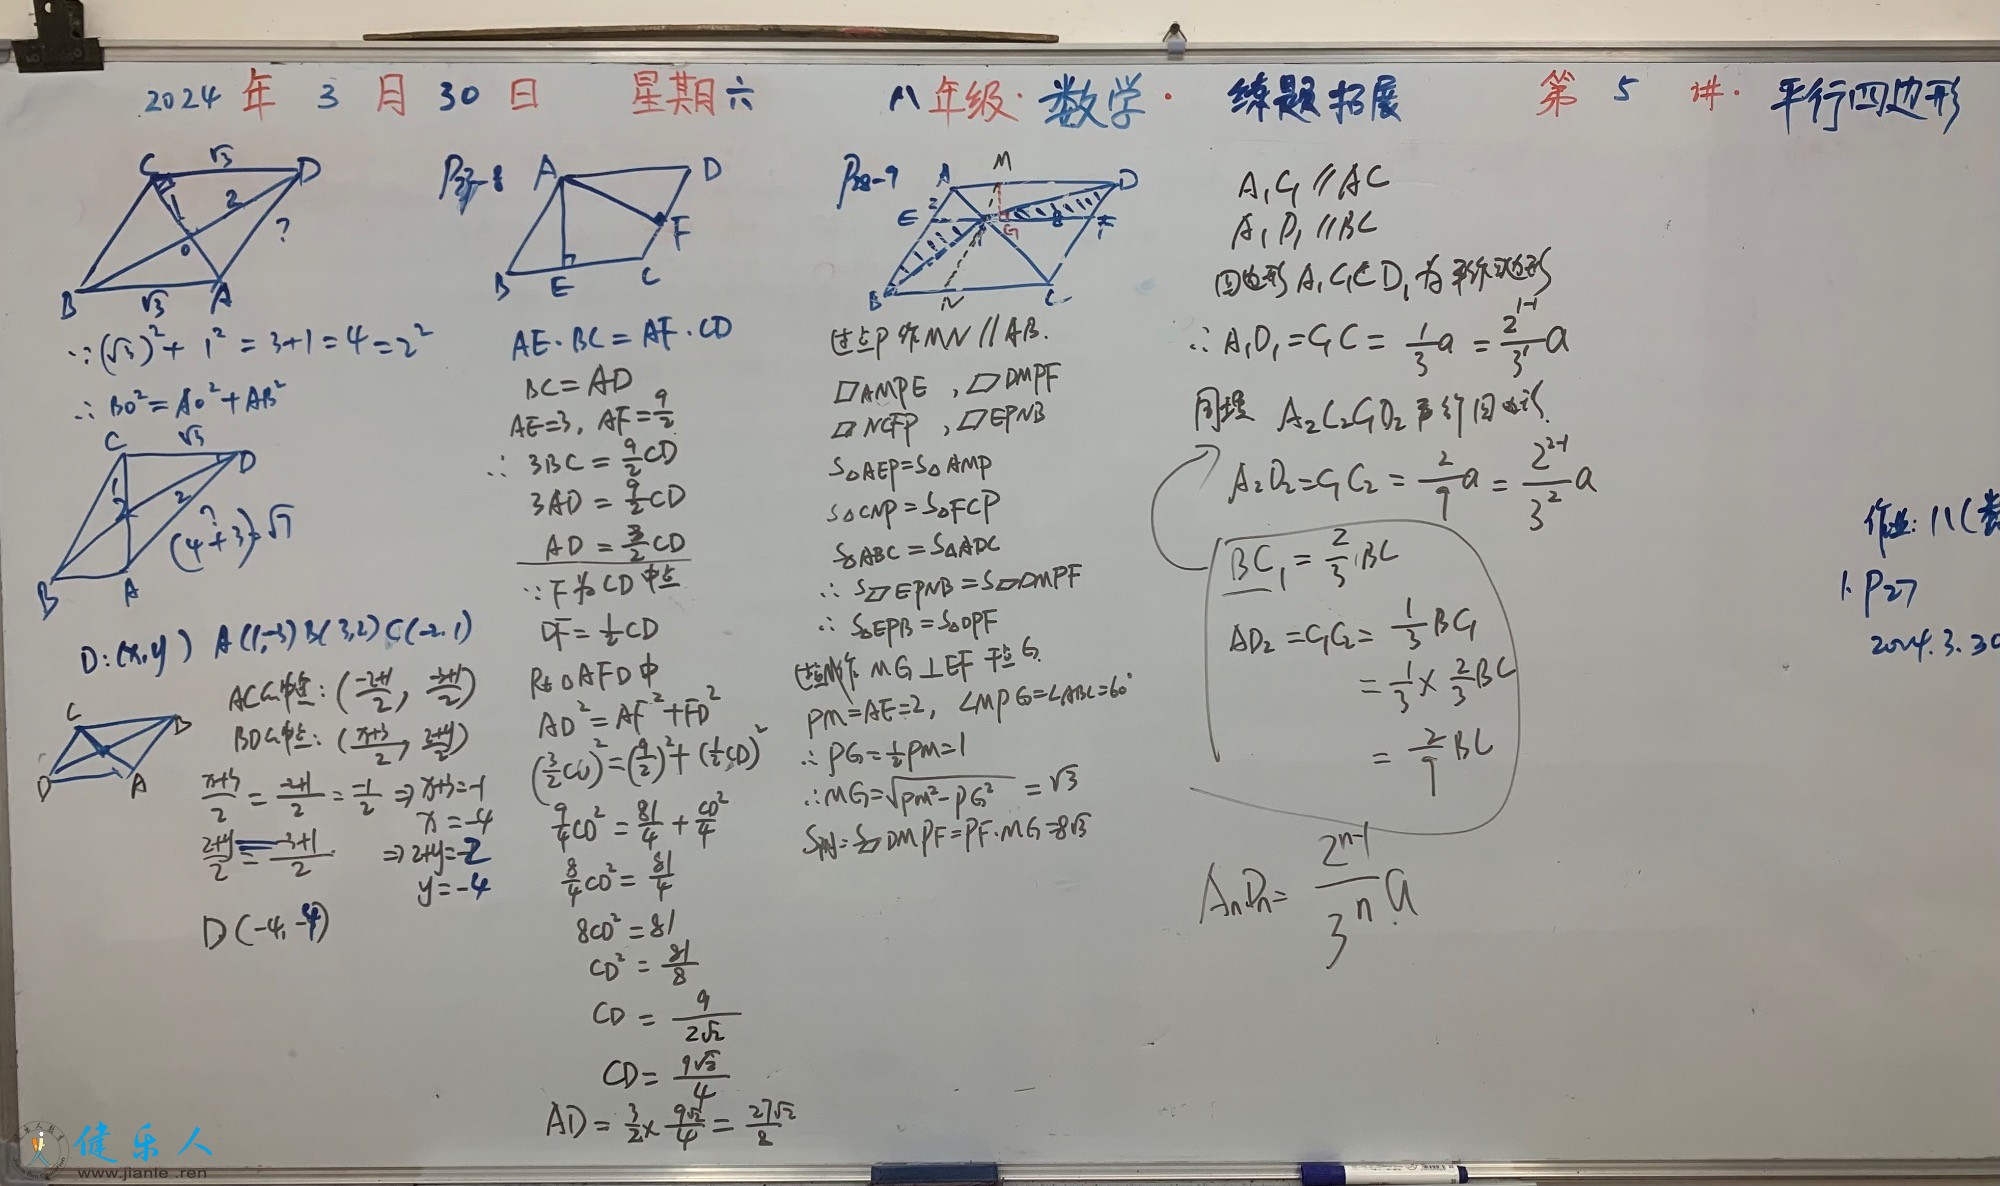 2024年3月30日 星期六 八年级·数学· 练题拓展 第5讲·平行四边形
C √3 D
1 2
O ?
B √3 A
∵(√3)²+1²=3+1=4=2²
∴BO²=AO²+AB²
C √3 D
1 2
2 ?
(4+3)=√7
B A
D:(x,y) A(1,-3) B(3,2) C(-2,1)
AC中点:(-2+1/2, -3+1/2)
BD中点:(x+3/2, 2+y/2)
C D
D A
x+3/2=-2+1/2=-1/2⇒x+3=-1
x=-4
2+y/2=-3+1/2 ⇒2+y=-2
y=-4
D(-4,-4)
P27-8 A D
F
B E C
AE·BC=AF·CD
BC=AD
AE=3, AF=9/2
∴3BC=9/2CD
3AD=9/2CD
AD=3/2CD
∵F为CD中点
DF=1/2CD
Rt△AFD中
AD²=AF²+FD²
(3/2CD)²=(9/2)²+(1/2CD)²
9/4CD²=81/4+CD²/4
8/4CD²=81/4
8CD²=81
CD²=81/8
CD=9/2√2
CD=9√2/4
AD=3/2×9√2/4=27√2/8
P28-9 A M D
E 2 G 8 F
B N C
过点P作MN∥AB.
▱AMPE,▱DMPF
▱NCFP,▱EPNB
S△AEP=S△AMP
S△CNP=S△FCP
S△ABC=S△ADC
∴S▱EPNB=S▱DMPF
∴S△EPB=S△DPF
过点M作MG⊥EF于点G.
PM=AE=2,∠MPG=∠ABC=60°
∴PG=1/2PM=1
∴MG=√PM²-PG²=√3
S阴=S▱DMPF=PF·MG=8√3
A₁C₁∥AC
A₁D₁∥BC
四边形A₁C₁CD₁为平行四边形
∴A₁D₁=C₁C=1/3a=2¹⁻¹/3¹a
同理 A₂C₂C₁D₂平行四边形.
A₂D₂=C₁C₂=2/9a=2²⁻¹/3²a
BC₁=2/3BC
AD₂=C₁C₂=1/3BC₁
=1/3×2/3BC
=2/9BC
AnDn=2ⁿ⁻¹/3ⁿa
作业:八(数
1.P27
2024.3.30
健乐人
www.jianle.ren